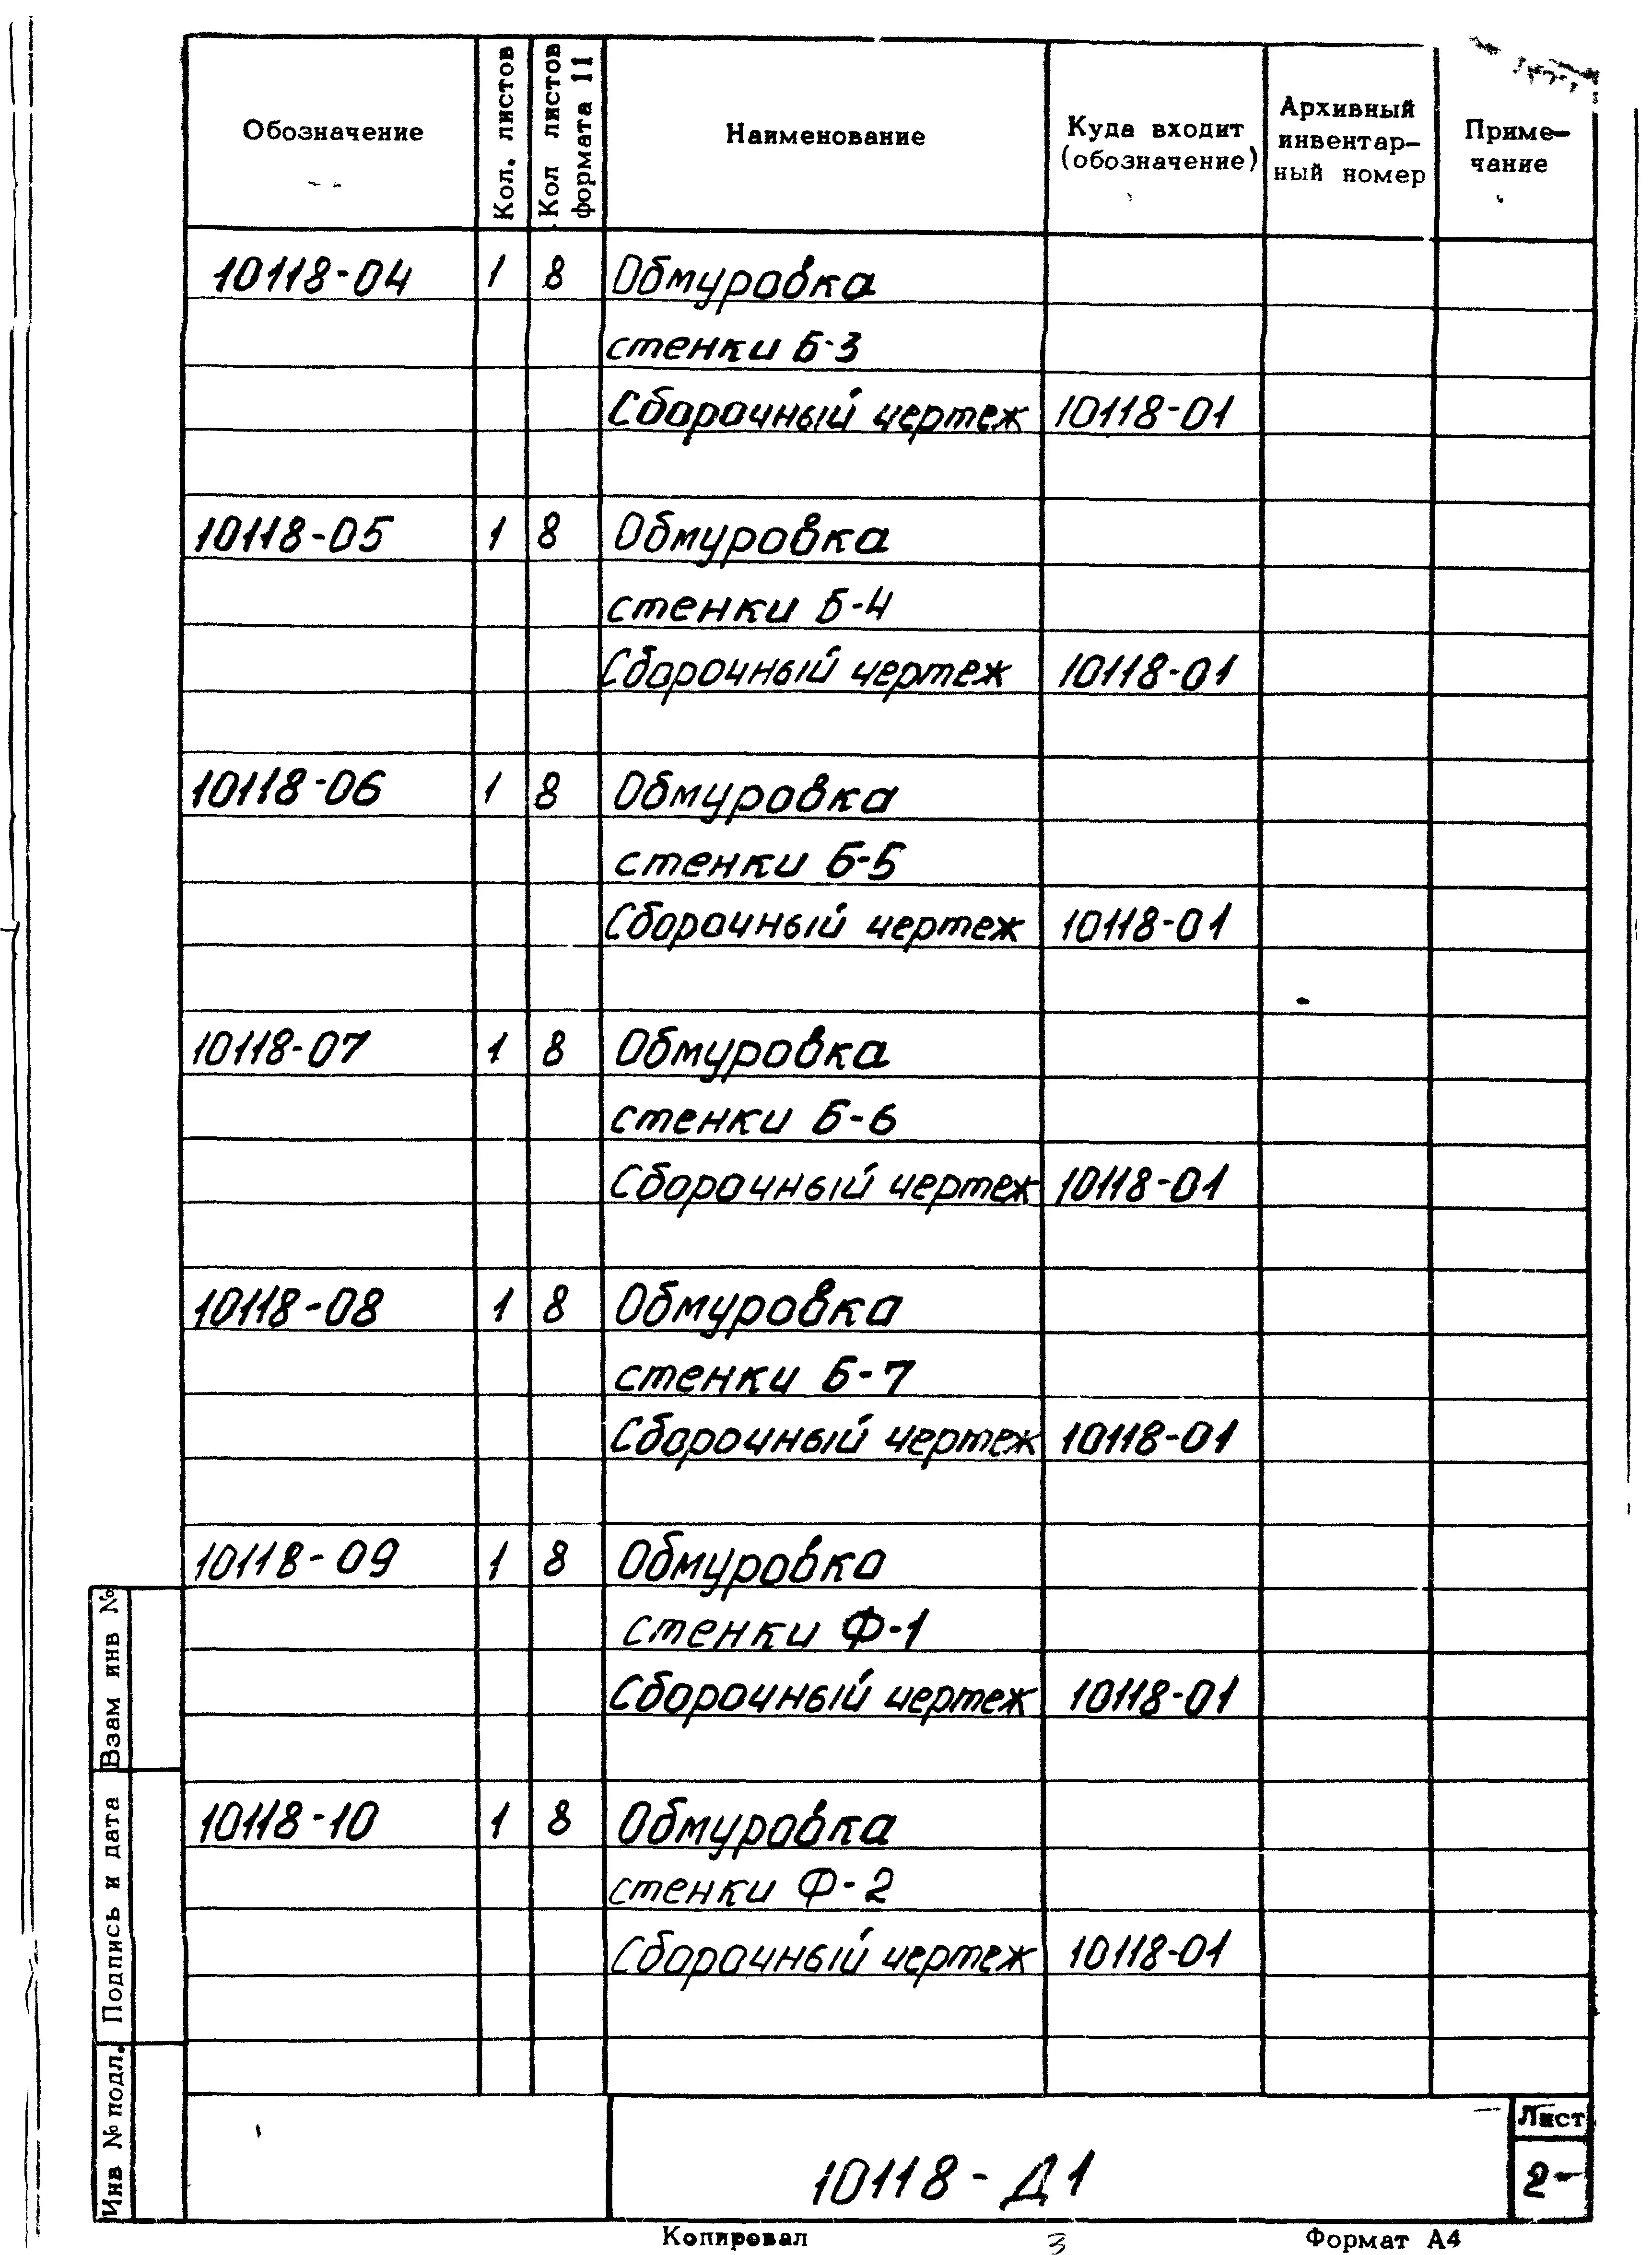 Обозначение
Кол. листов
Кол листов
формата 11
Наименование
Куда входит
(обозначение)
Архивный
инвентар-
ный номер
Приме-
чание
10118-04 1 8 Обмуровка
стенки Б-3
Сборочный чертеж 10118-01
10118-05 1 8 Обмуровка
стенки Б-4
Сборочный чертеж 10118-01
10118-06 1 8 Обмуровка
стенки Б-5
Сборочный чертеж 10118-01
10118-07 1 8 Обмуровка
стенки Б-6
Сборочный чертеж 10118-01
10118-08 1 8 Обмуровка
стенки Б-7
Сборочный чертеж 10118-01
10118-09 1 8 Обмуровка
стенки Ф-1
Сборочный чертеж 10118-01
10118-10 1 8 Обмуровка
стенки Ф-2
Сборочный чертеж 10118-01
Взам инв №
Подпись и дата
Инв № подл.
10118-Д1
Лист
2
Копировал 3 Формат А4